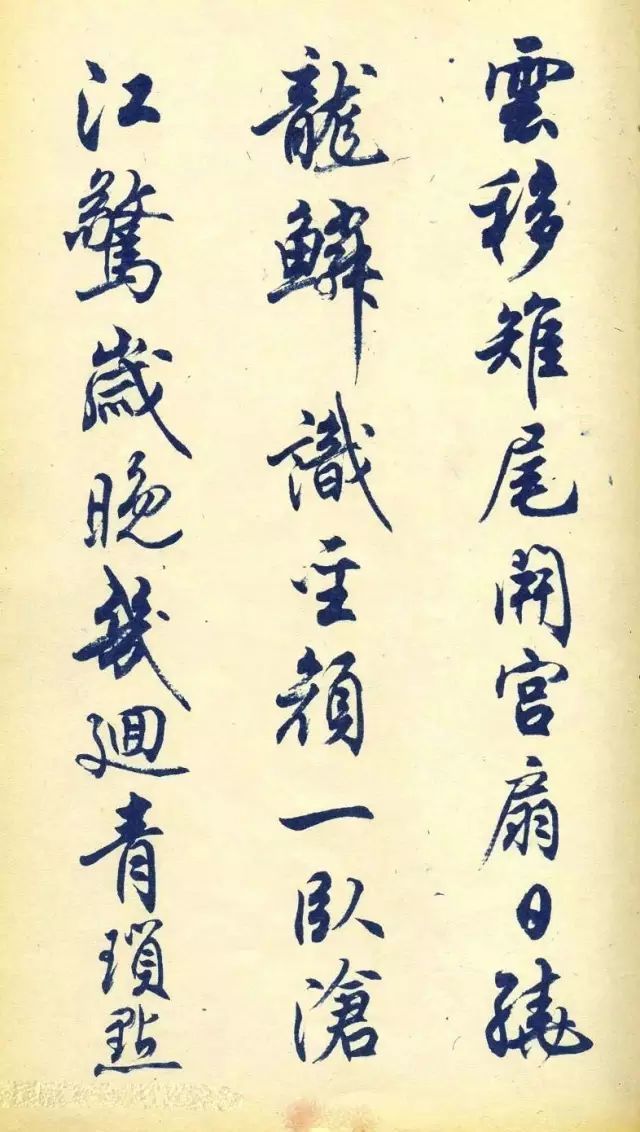 雲移雉尾開宮扇日繞
龍鱗識聖顏一臥滄
江驚歲晚幾迴青瑣點